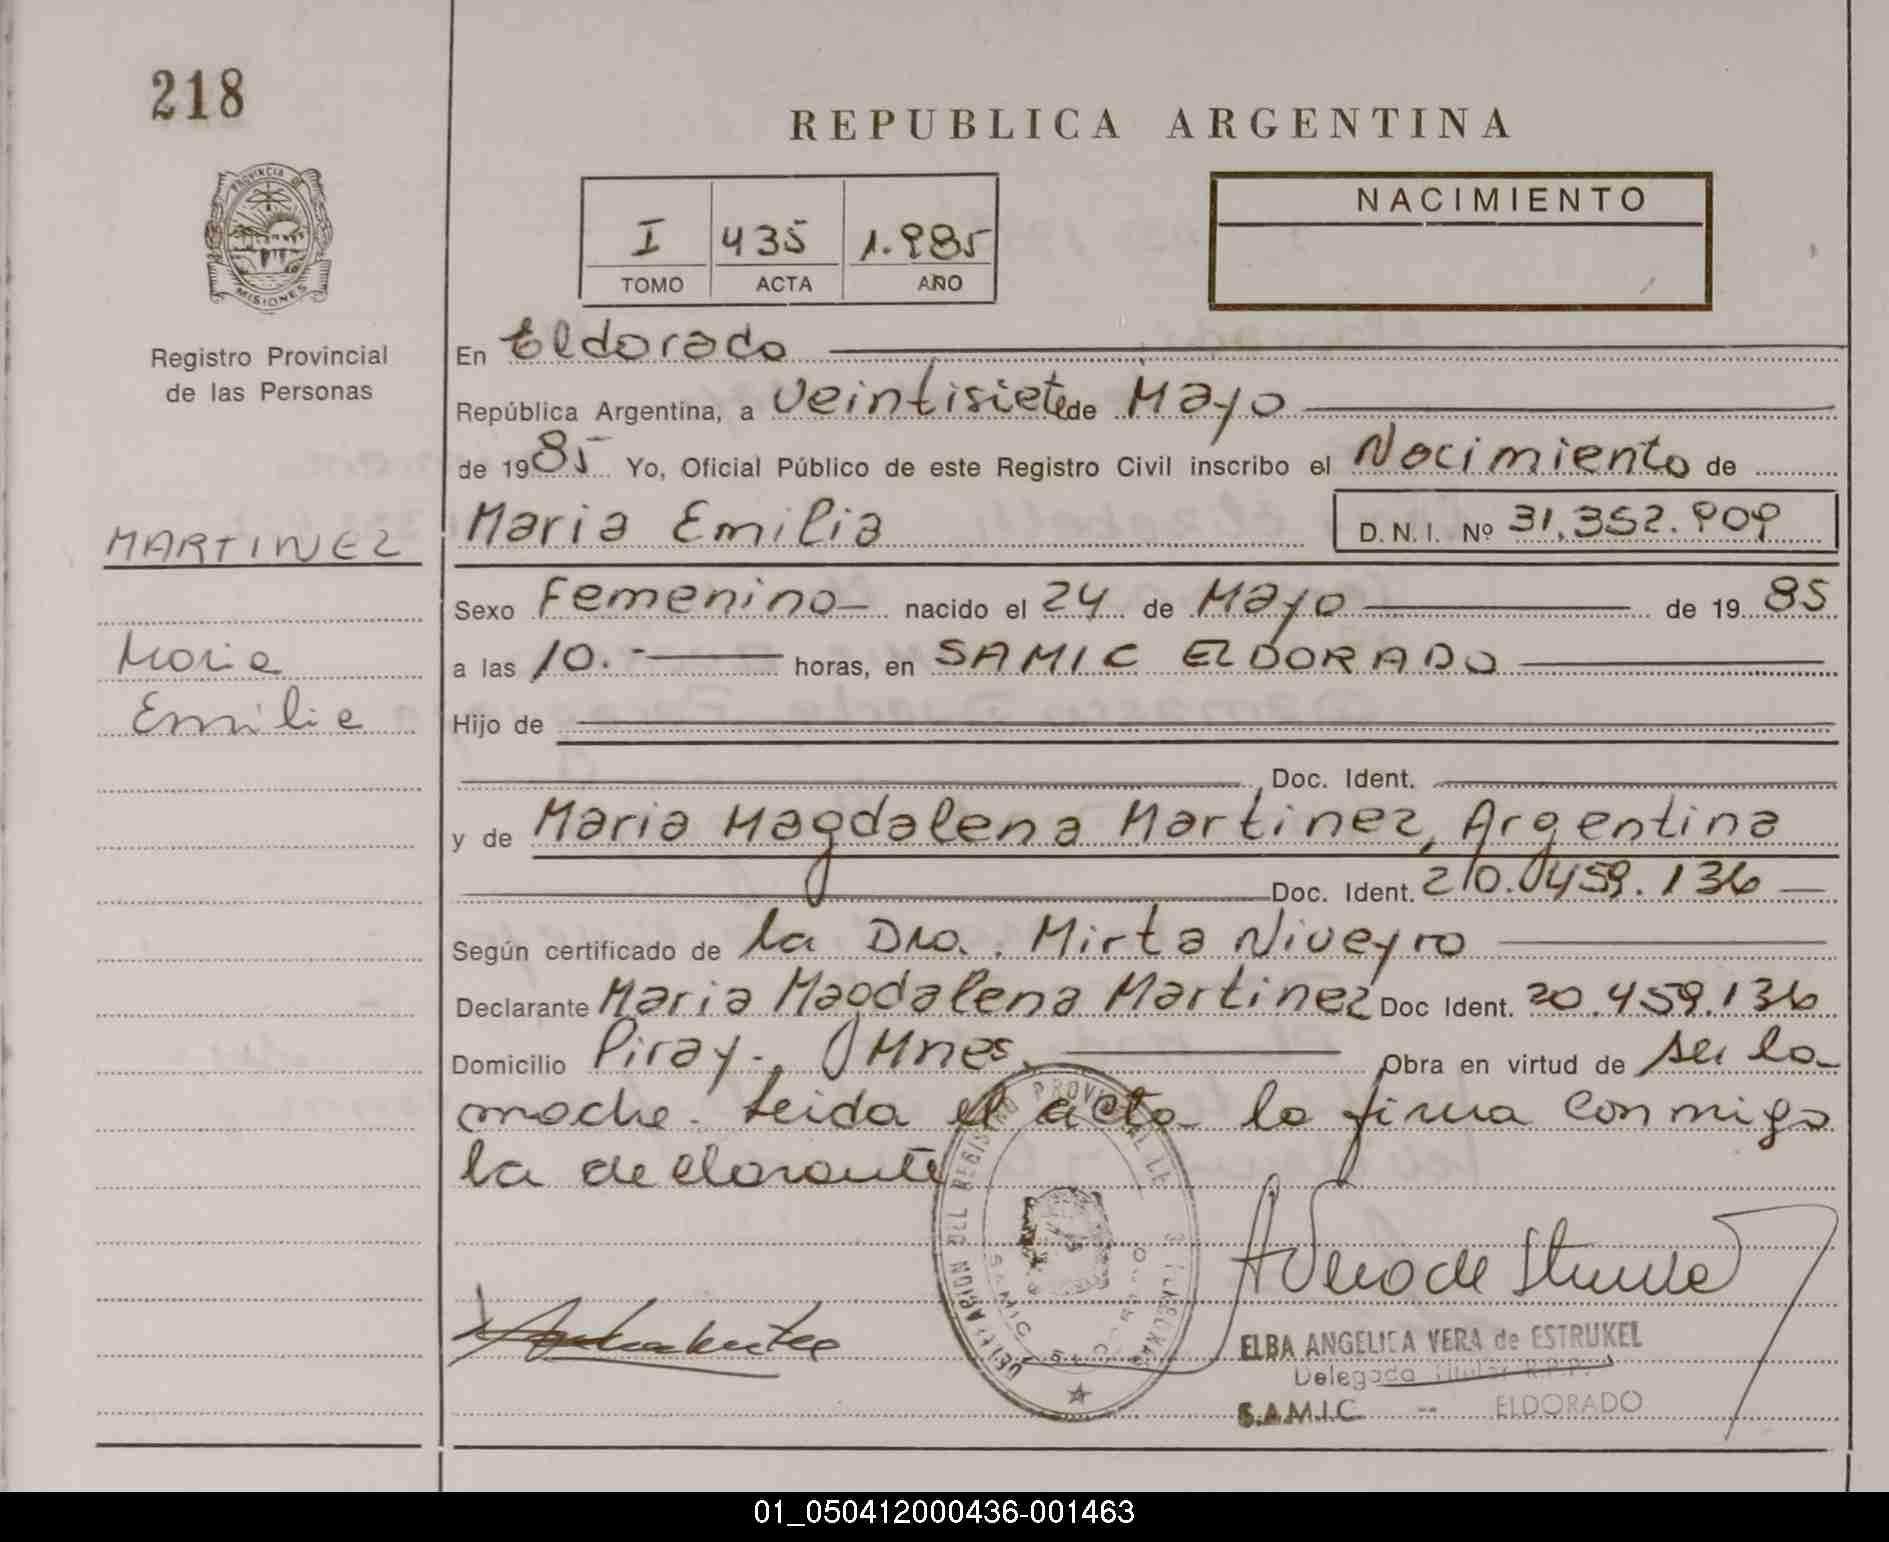 218
REPUBLICA ARGENTINA
PROVINCIA DE
MISIONES
I 435 1.985
TOMO ACTA AÑO
NACIMIENTO
Registro Provincial
de las Personas
En Eldorado
República Argentina, a Veintisiete de Mayo
de 1985 Yo, Oficial Público de este Registro Civil inscribo el Nacimiento de
MARTINEZ
Maria Emilia D.N.I. Nº 31.352.909
Sexo Femenino nacido el 24 de Mayo de 1985
Maria
a las 10.- horas, en SAMIC ELDORADO
Emilia
Hijo de
Doc. Ident.
y de Maria Magdalena Martinez, Argentina
Doc. Ident. 20.459.136
Según certificado de la Dra. Mirta Niveyro
Declarante Maria Magdalena Martinez Doc Ident. 20.459.136
Domicilio Piray. Mnes. Obra en virtud de ser la
madre. Leida el acta la firma conmigo
la declarante
ELBA ANGELICA VERA de ESTRUKEL
Delegada Titular R.P.P.
S.A.M.I.C. -- ELDORADO
01_050412000436-001463